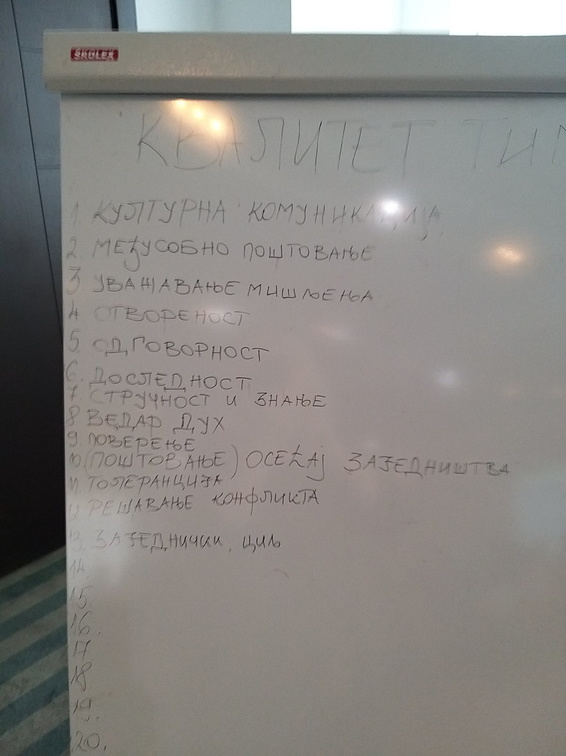 SKOLEX
КВАЛИТЕТ ТИМ
1. КУЛТУРНА КОМУНИКАЦИЈА
2. МЕЂУСОБНО ПОШТОВАЊЕ
3 УВАЖАВАЊЕ МИШЉЕЊА
4. ОТВОРЕНОСТ
5. ОДГОВОРНОСТ
6. ДОСЛЕДНОСТ
7 СТРУЧНОСТ И ЗНАЊЕ
8 ВЕДАР ДУХ
9. ПОВЕРЕЊЕ
10 (ПОШТОВАЊЕ) ОСЕЋАЈ ЗАЈЕДНИШТВА
11. ТОЛЕРАНЦИЈА
12 РЕШАВАЊЕ КОНФЛИКТА
13. ЗАЈЕДНИЧКИ ЦИЉ
14.
15.
16.
17
18
19.
20.